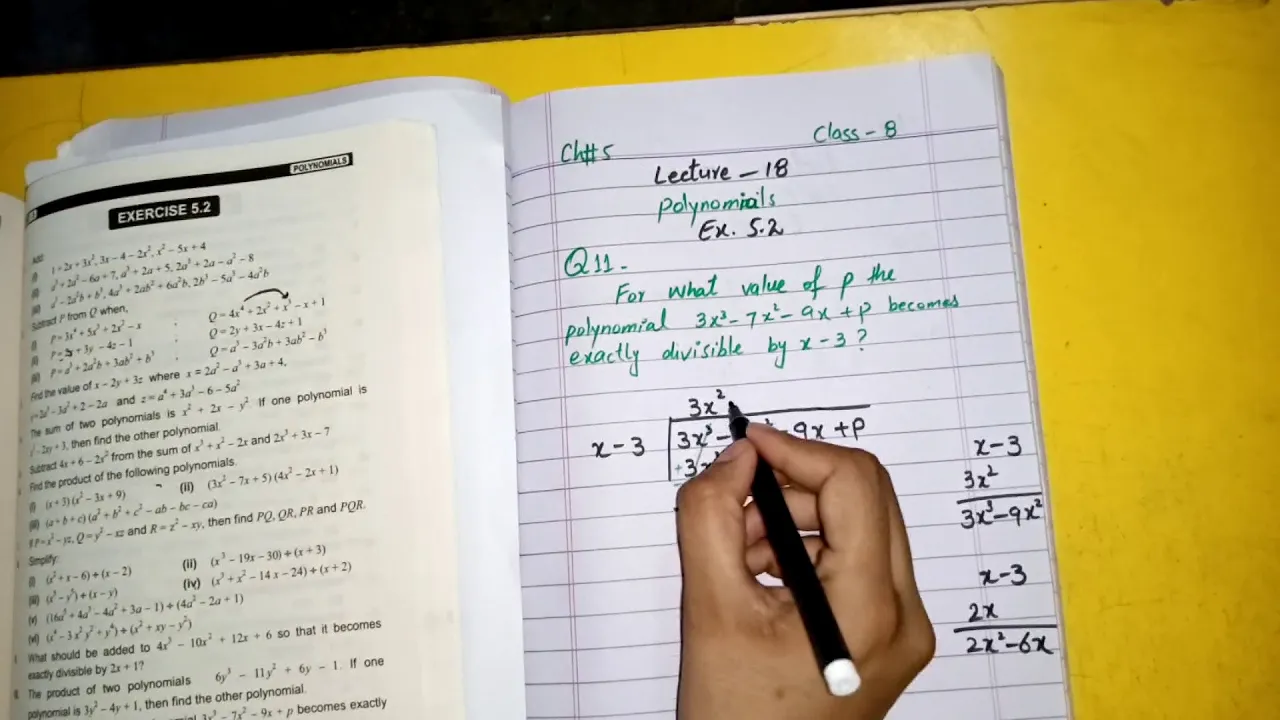 POLYNOMIALS
EXERCISE 5.2
Add:
(i) 1 + 2x + 3x², 3x – 4 – 2x², x² – 5x + 4
(ii) a³ + 2a² – 6a + 7, a³ + 2a + 5, 2a³ + 2a – a² – 8
(iii) a³ – 2a²b + b³, 4a³ + 2ab² + 6a²b, 2b³ – 5a³ – 4a²b
Subtract P from Q when,
(i) P = 3x⁴ + 5x³ + 2x² – x ; Q = 4x⁴ + 2x² + x³ – x + 1
(ii) P = 2x + 3y – 4z – 1 ; Q = 2y + 3x – 4z + 1
(iii) P = a³ + 2a²b + 3ab² + b³ ; Q = a³ – 3a²b + 3ab² – b³
Find the value of x – 2y + 3z where x = 2a² – a³ + 3a + 4,
y = 2a³ – 3a² + 2 – 2a and z = a⁴ + 3a³ – 6 – 5a²
The sum of two polynomials is x² + 2x – y². If one polynomial is
x² – 2xy + 3, then find the other polynomial.
Subtract 4x + 6 – 2x² from the sum of x³ + x² – 2x and 2x³ + 3x – 7
Find the product of the following polynomials.
(i) (x + 3) (x² – 3x + 9) (ii) (3x² – 7x + 5) (4x² – 2x + 1)
(iii) (a + b + c) (a² + b² + c² – ab – bc – ca)
If P = x² – yz, Q = y² – xz and R = z² – xy, then find PQ, QR, PR and PQR.
Simplify:
(i) (x² + x – 6) ÷ (x – 2) (ii) (x³ – 19x – 30) ÷ (x + 3)
(iii) (x⁵ – y⁵) ÷ (x – y) (iv) (x³ + x² – 14x – 24) ÷ (x + 2)
(v) (16a⁵ + 4a³ – 4a² + 3a – 1) ÷ (4a² – 2a + 1)
(vi) (x⁴ – 3x²y² + y⁴) ÷ (x² + xy – y²)
What should be added to 4x³ – 10x² + 12x + 6 so that it becomes
exactly divisible by 2x + 1?
The product of two polynomials 6y³ – 11y² + 6y – 1. If one
polynomial is 3y² – 4y + 1, then find the other polynomial.
3x³ – 7x² – 9x + p becomes exactly
Ch# 5 Class - 8
Lecture - 18
Polynomials
Ex. 5.2
Q11.
For what value of p the
polynomial 3x³ - 7x² - 9x + p becomes
exactly divisible by x - 3?
3x²
x - 3 3x³ - 9x + p
x - 3
3x²
3x³ - 9x²
x - 3
2x
2x² - 6x